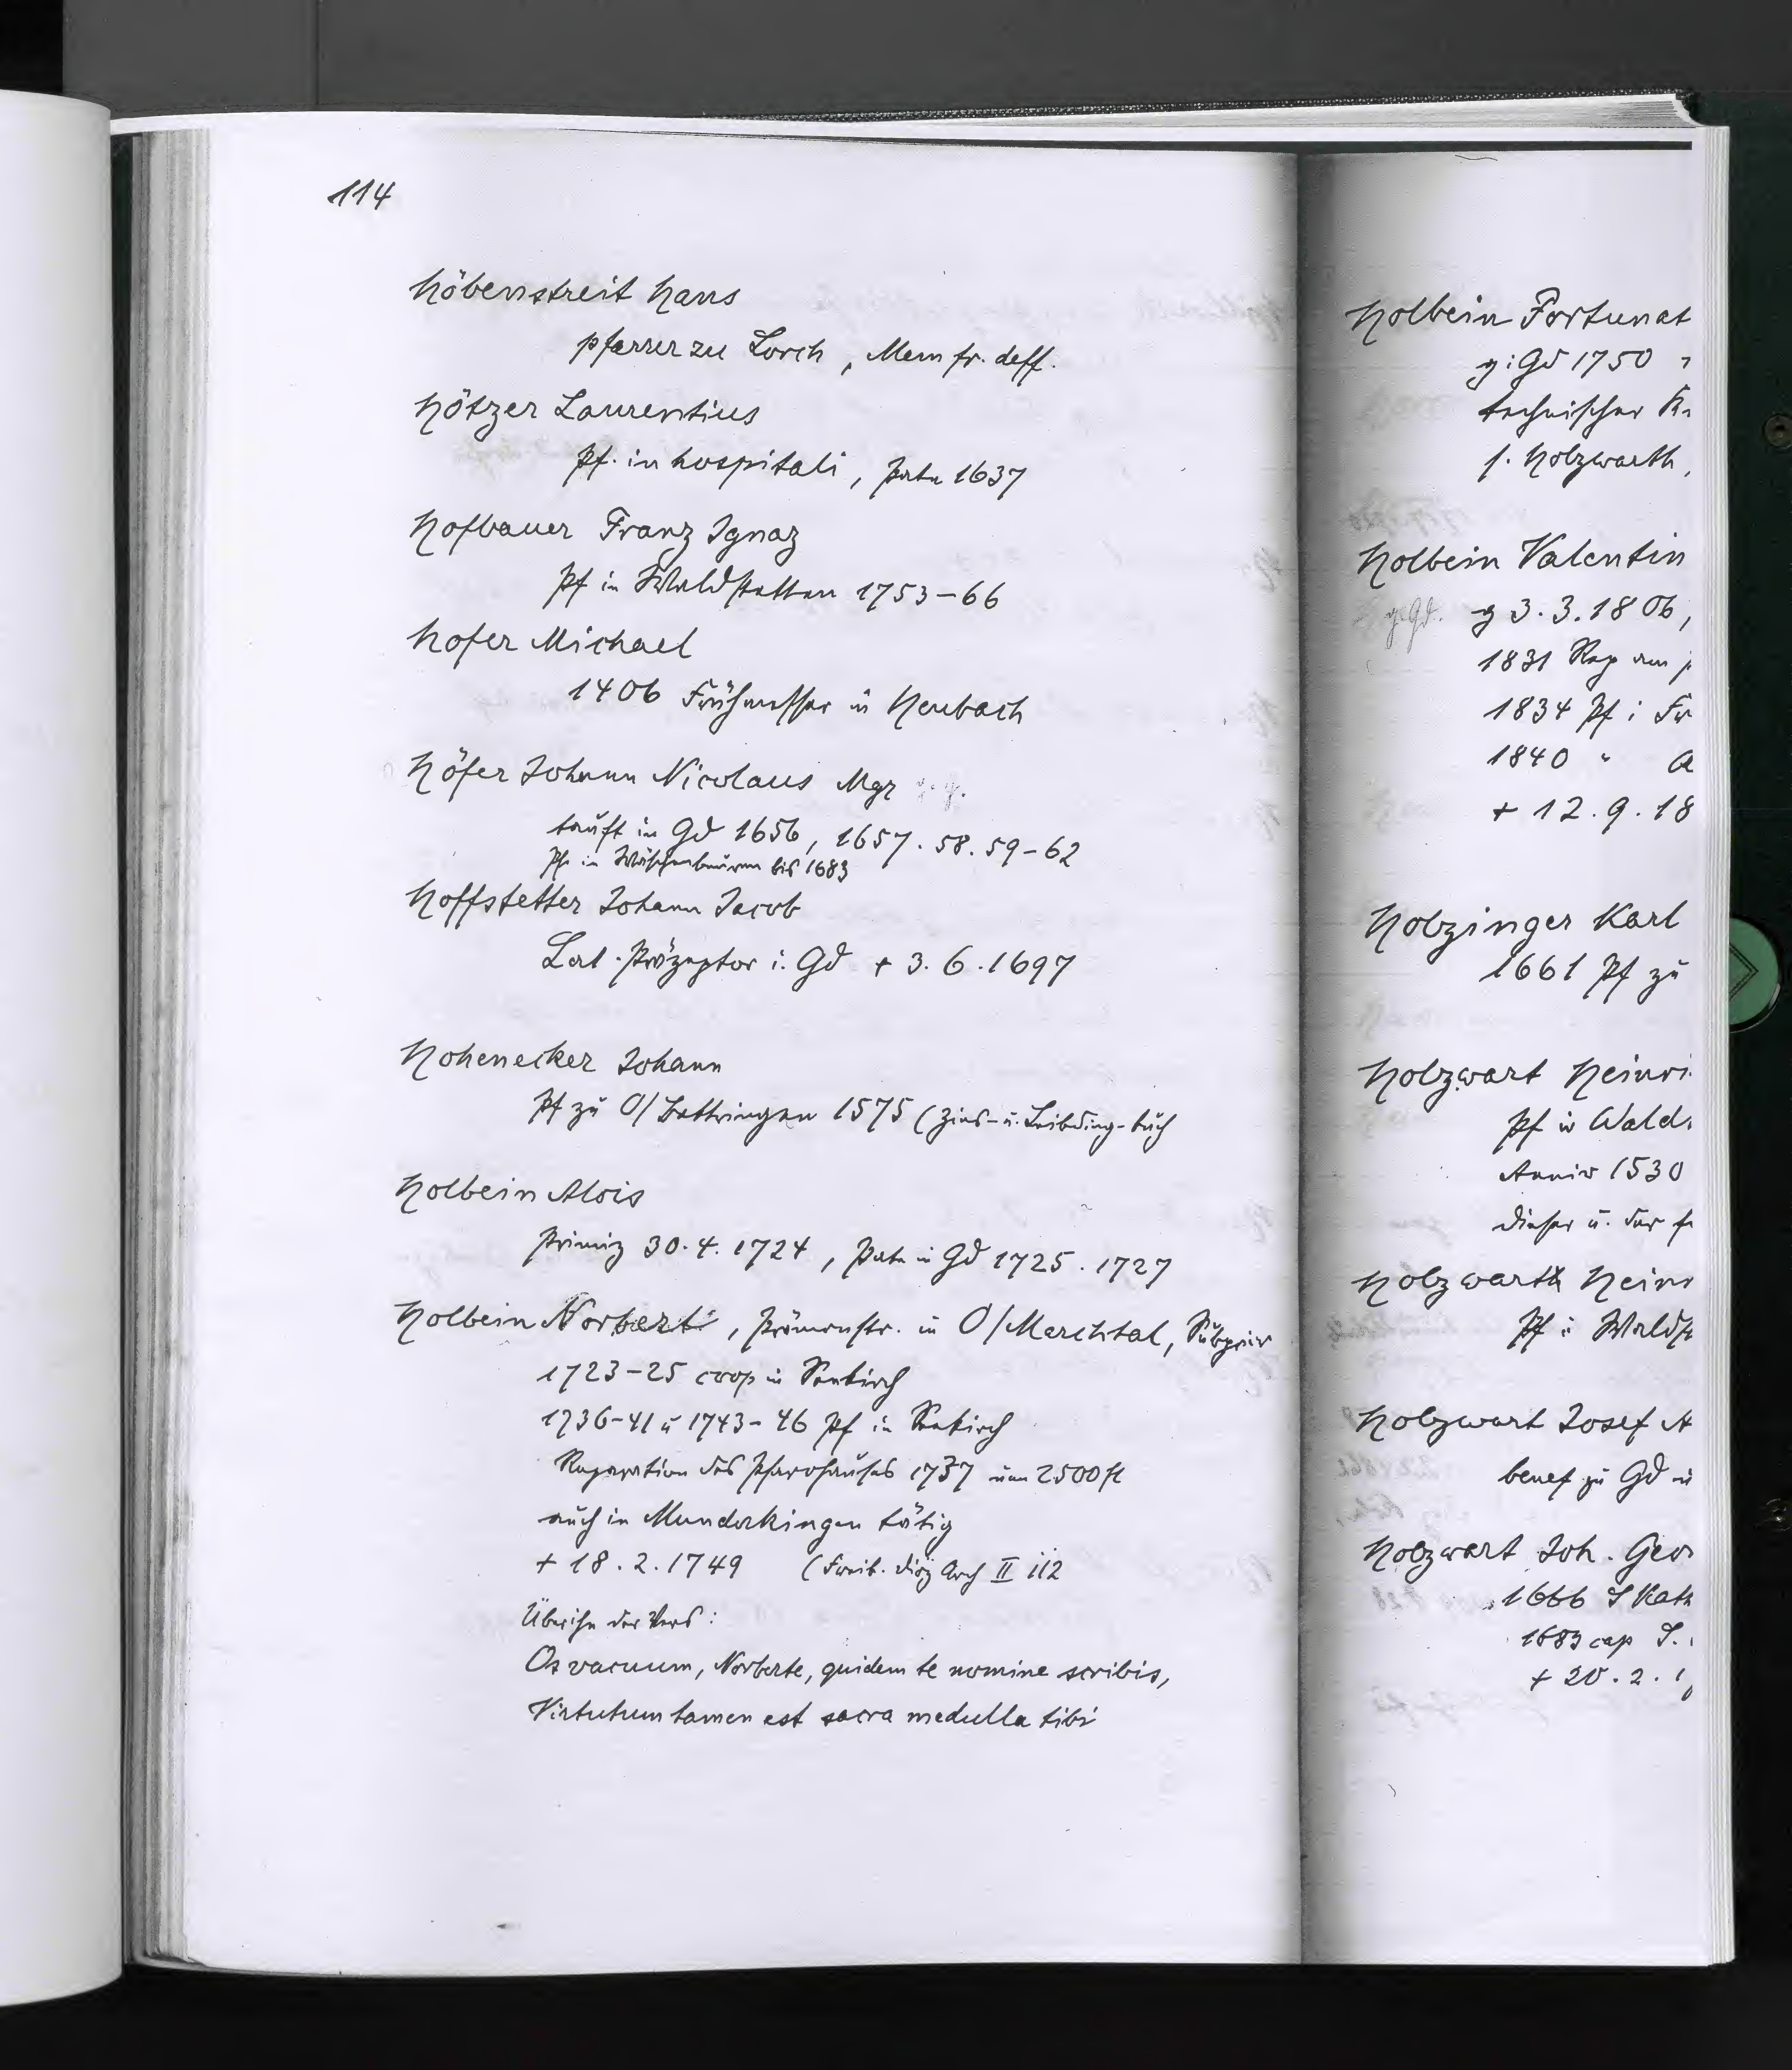 114
Höbenstreit Hans
pfarrer zu Lorch, Mem fr. deff.
Hötzer Laurentius
Pf. in hospitali, Pate 1637
Hofbauer Franz Ignaz
Pf in Waldstetten 1753-66
Hofer Michael
1406 Frühmesser in Heubach
Höfer Johann Nicolaus Mgr g. g.
tauft in Gd 1656, 1657. 58. 59-62
Pfr in Wäschenbeuren bis 1683
Hoffstetter Johann Jacob
Lat. Präzeptor i. Gd + 3. 6. 1697
Hohenecker Johann
Pf zu O/Bettringen 1575 (Zins- u. Leibding-buch
Holbein Alois
Primiz 30. 4. 1724, Pate in Gd 1725. 1727
Holbein Norbert, Prämonstr. in O/Marchtal, Subprior
1723-25 coop in Seekirch
1736-41 u 1743-46 Pf in Seekirch
Reparation des Pfarrhauses 1737 um 2500 fl
auch in Munderkingen tätig
+ 18. 2. 1749 (Freib. Diöz Arch II 112
Über ihn der Vers:
Os vacuum, Norberte, quidem te nomine scribis,
Virtutum tamen est sacra medulla tibi
Holbein Fortunat
g i Gd 1750
technischer
s. Holzwarth,
Holbein Valentin
g. Gd. g 3. 3. 1806,
1831 Rep am
1834 Pf i
1840 "
+ 12. 9. 18
Holzinger Karl
1661 Pf zu
Holzwart Heinri
Pf in Wald
Anniv 1530
dieser u. der
Holzwarth Heinr
Pf i Waldst
Holzwart Josef A
benef zu Gd u
Holzwart Joh. Geor
1666 S Kath
1683 cap S.
+ 20. 2. 1